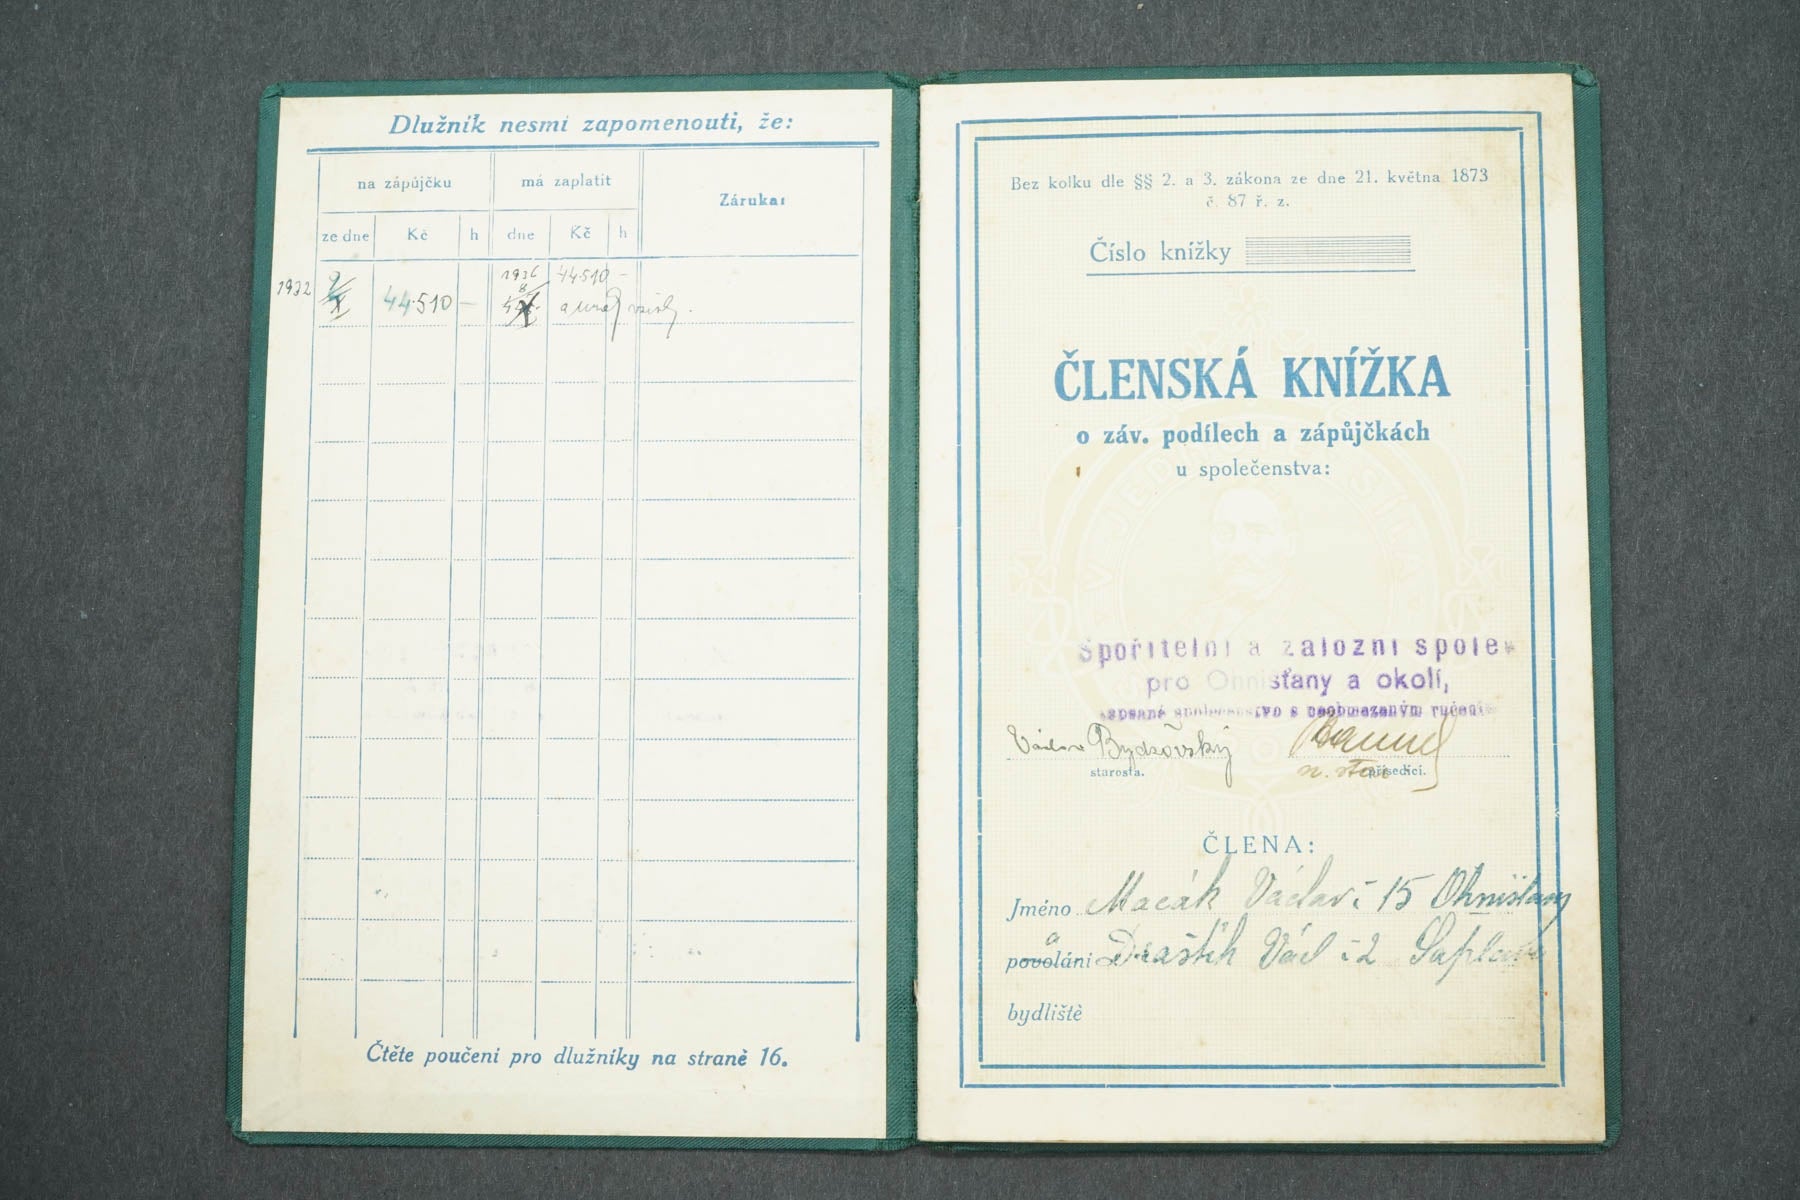 Dlužník nesmí zapomenouti, že:
na zápůjčku má zaplatit Záruka:
ze dne Kč h dne Kč h
1932 9/X 44.510 — 1936 8/X 44.510 —
Čtěte poučení pro dlužníky na straně 16.
Bez kolku dle §§ 2. a 3. zákona ze dne 21. května 1873
č. 87 ř. z.
Číslo knížky
ČLENSKÁ KNÍŽKA
o záv. podílech a zápůjčkách
u společenstva:
V JEDNOTĚ SÍLA
Spořitelní a záložní spole
pro Ohnišťany a okolí,
zapsané společenstvo s neobmezeným ručením
Václav Bydžovský
starosta. přísedící.
ČLENA:
Jméno Macák Václav č 15 Ohnišťany
a
povolání Draštík Václ č 2
bydliště